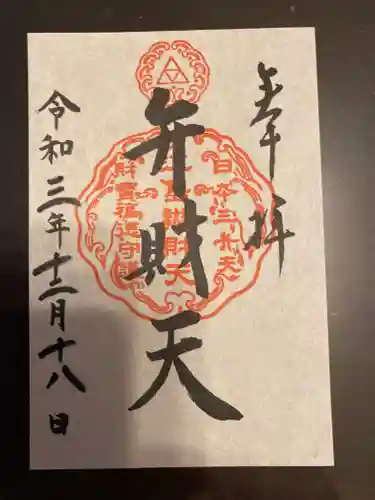 奉拝
弁財天
日本三弁天
財寳福徳守護
令和三年十二月十八日